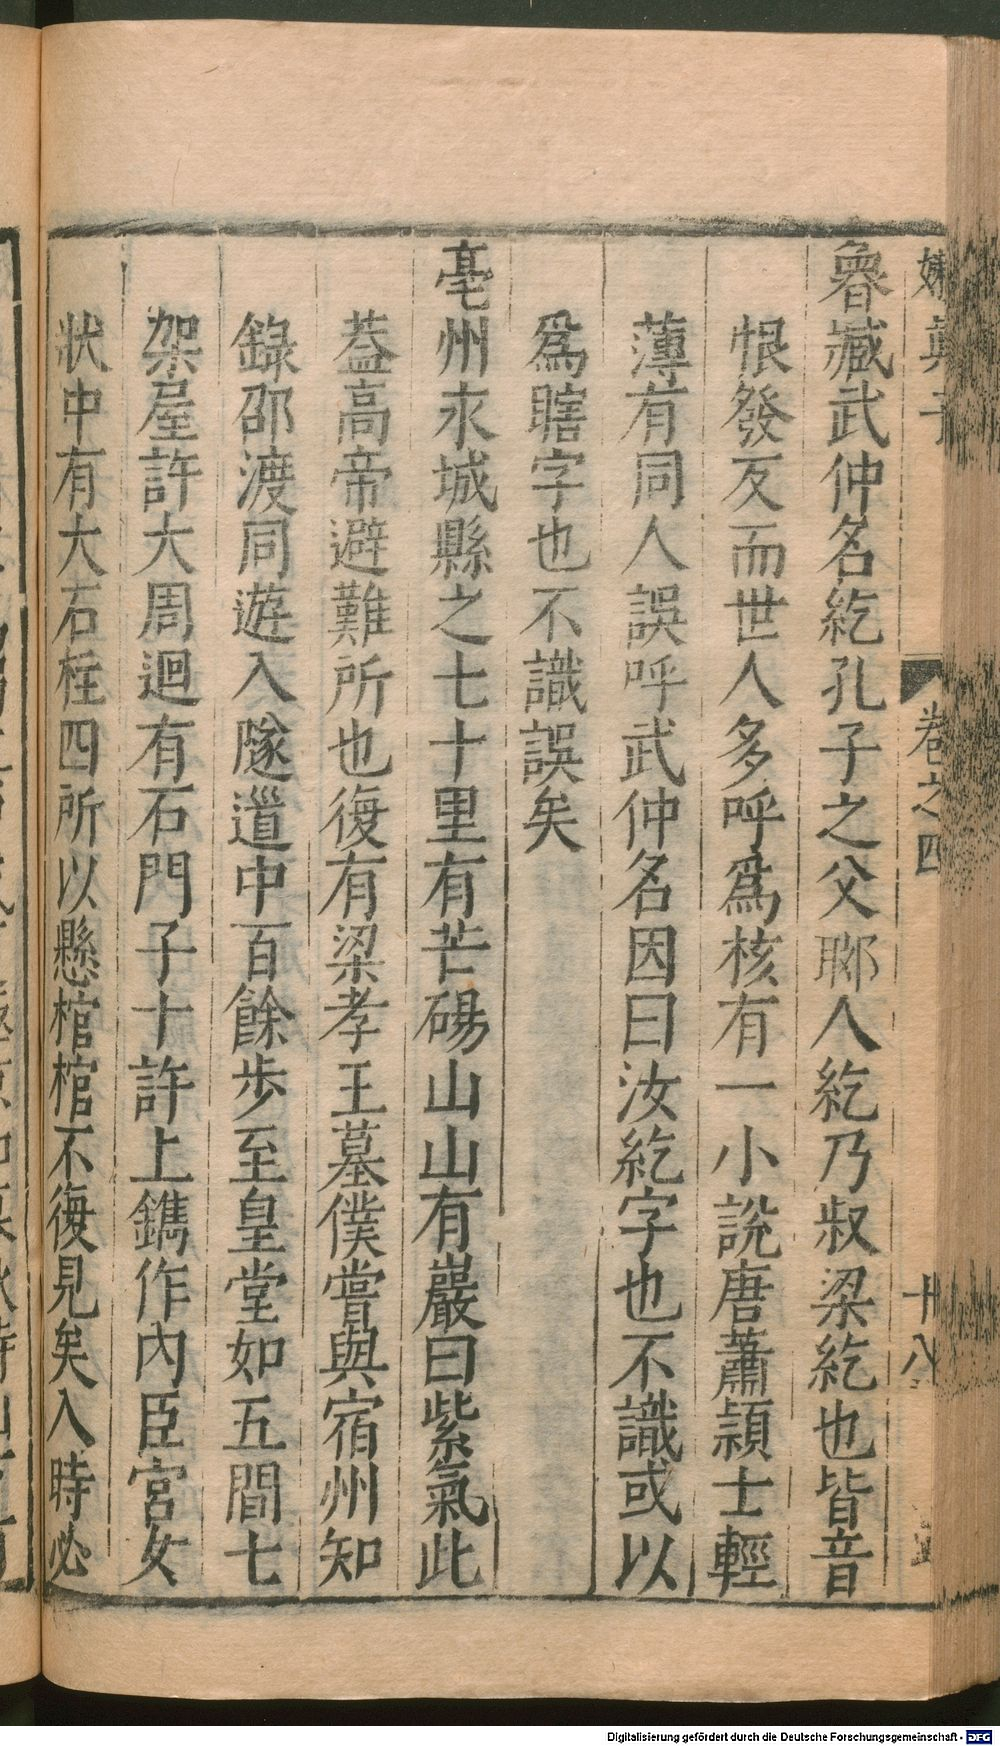 嬾真子 卷之四 十八
魯臧武仲名紇孔子之父郰人紇乃叔梁紇也皆音
恨發反而世人多呼爲核有一小說唐蕭穎士輕
薄有同人誤呼武仲名因曰汝紇字也不識或以
爲瞎字也不識誤矣
亳州永城縣之七十里有芒碭山山有巖曰紫氣此
葢高帝避難所也復有梁孝王墓僕嘗與宿州知
錄邵渡同遊入隧道中百餘步至皇堂如五間七
架屋許大周迴有石門子十許上鐫作內臣宮女
狀中有大石柱四所以懸棺棺不復見矣入時必
Digitalisierung gefördert durch die Deutsche Forschungsgemeinschaft - DFG